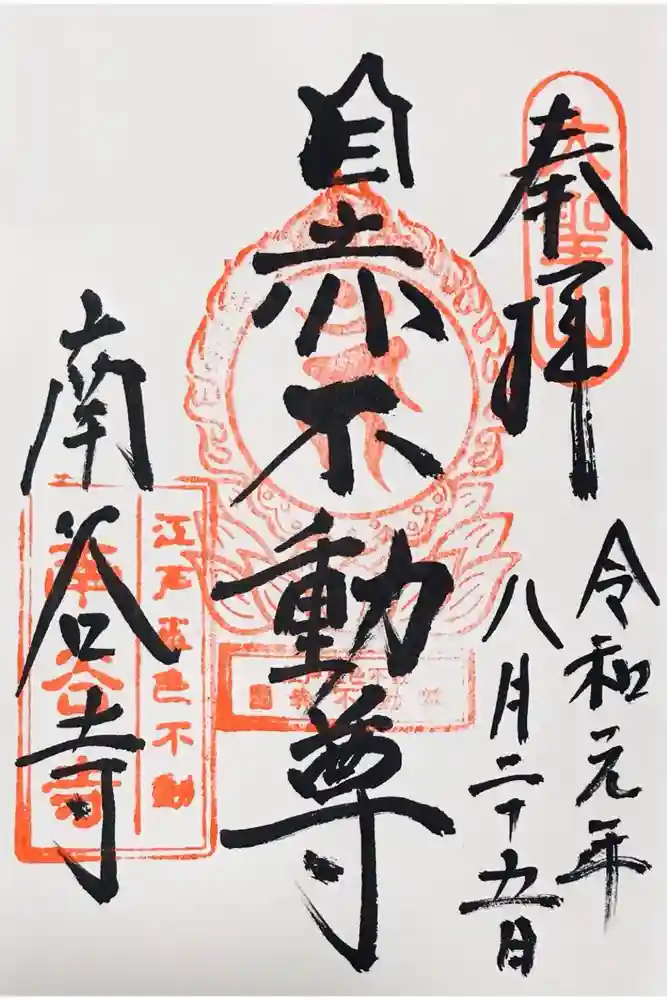 奉拝
大聖山
令和元年
八月二十九日
目赤不動尊
南谷寺
江戸五色不動
南谷寺